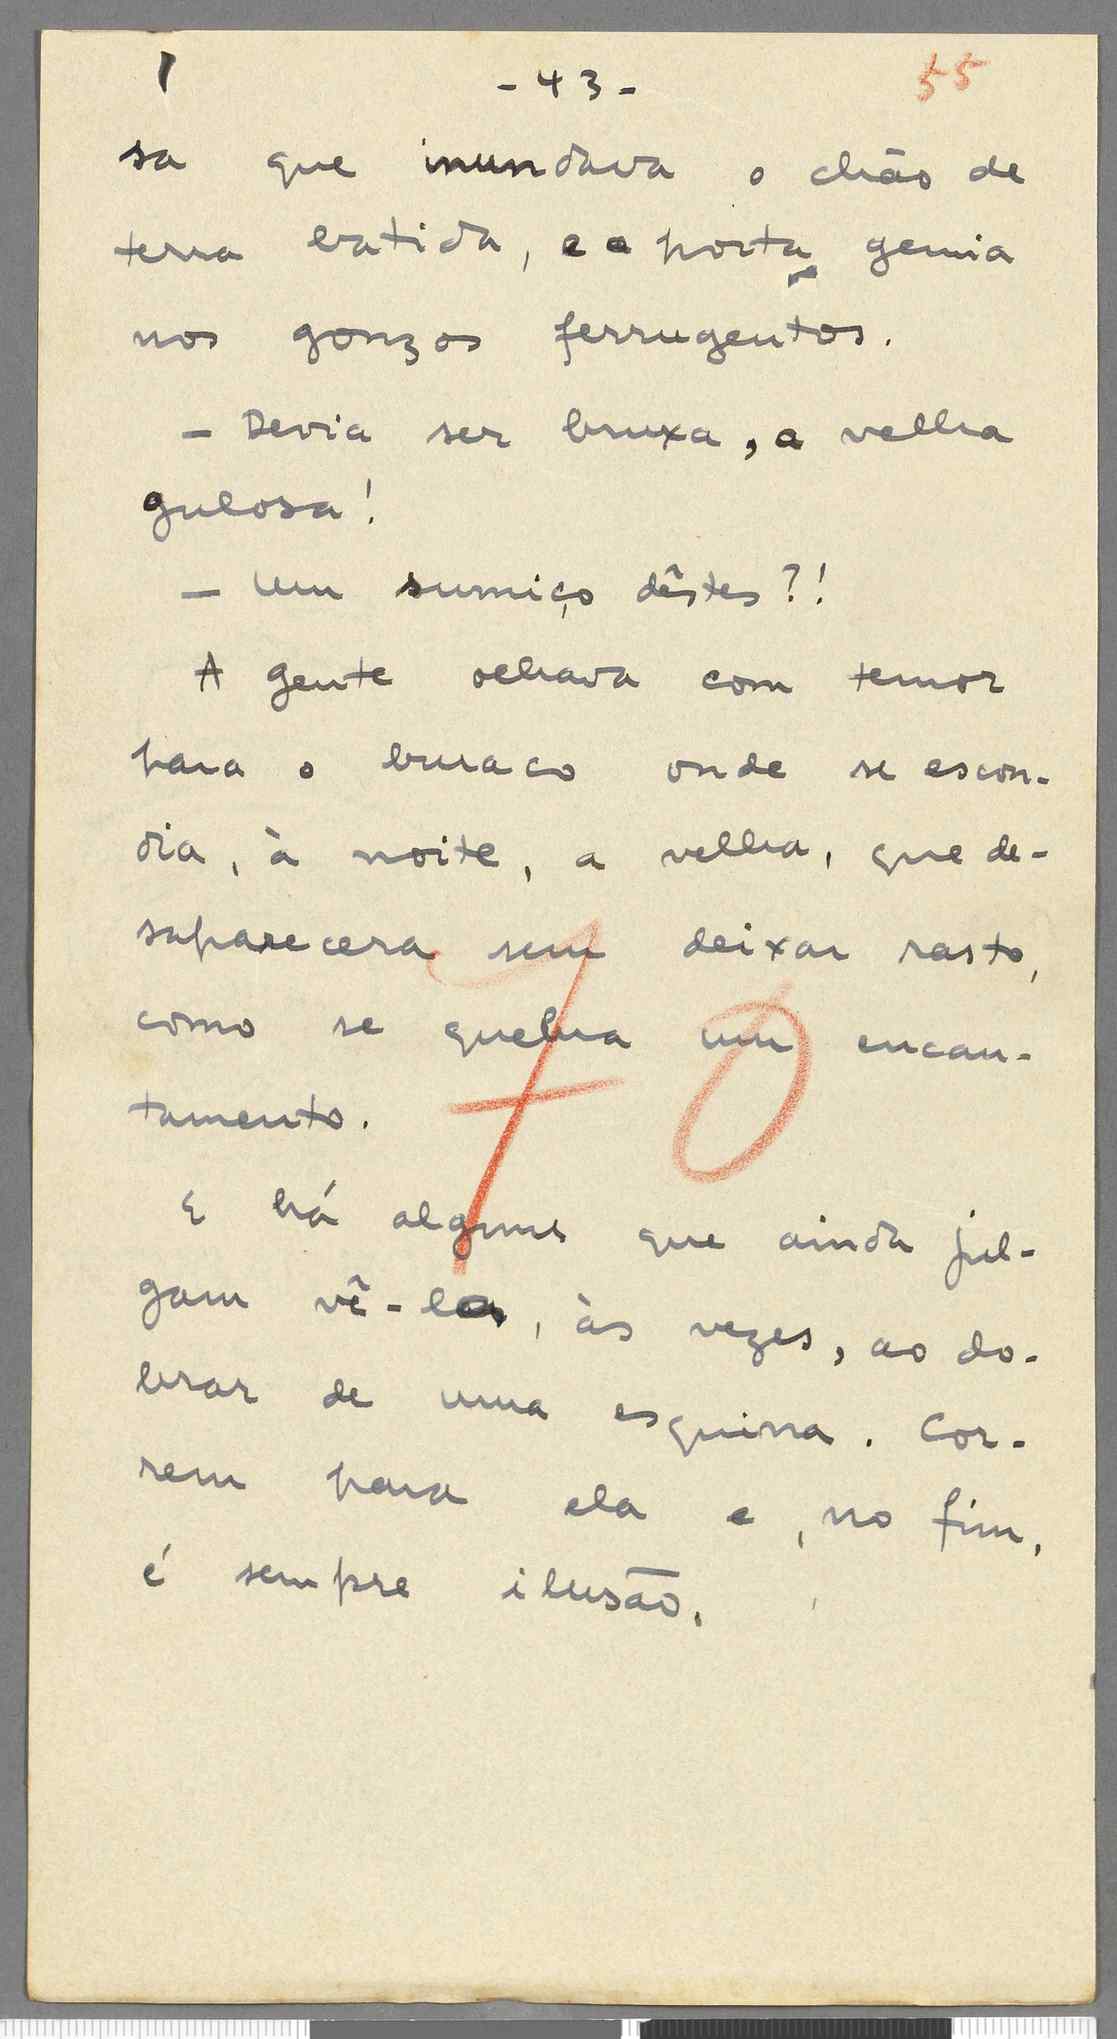 - 43 - 55
sa que inundava o chão de
terra batida, e a porta gemia
nos gonzos ferrugentos.
- Devia ser bruxa, a velha
gulosa!
- Um sumiço dêstes?!
A gente olhava com temor
para o buraco onde se escon-
dia, à noite, a velha, que de-
saparecera sem deixar rasto,
como se quebra um encan-
tamento.
70
E há alguns que ainda jul-
gam vê-la, às vezes, ao do-
brar de uma esquina. Cor-
rem para ela e, no fim,
é sempre ilusão.